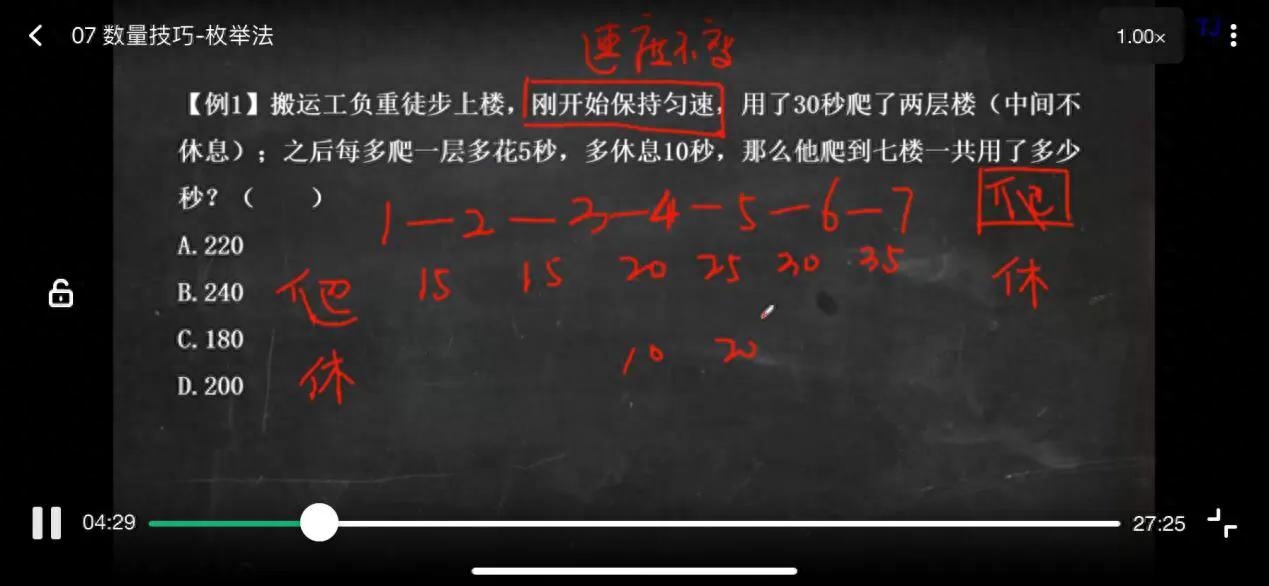 07 数量技巧-枚举法
1.00×
TJ
速度不变
【例1】搬运工负重徒步上楼，刚开始保持匀速，用了30秒爬了两层楼（中间不
休息）；之后每多爬一层多花5秒，多休息10秒，那么他爬到七楼一共用了多少
秒？（　　）
1—2—3—4—5—6—7 爬
A.220
15 15 20 25 30 35 休
B.240 爬
C.180
10 20
D.200 休
04:29
27:25